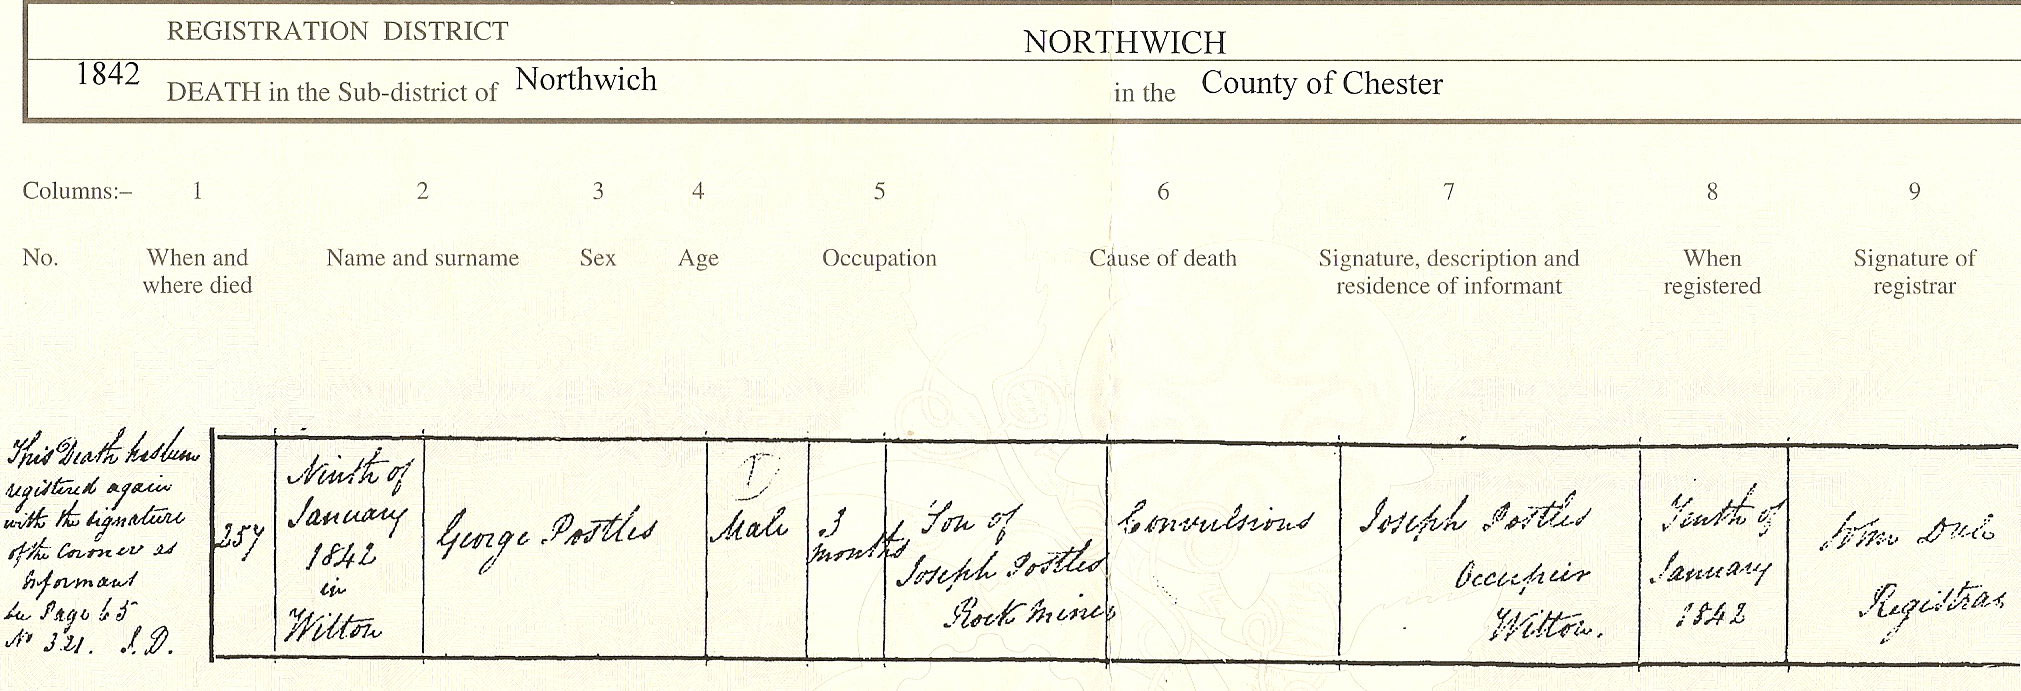 REGISTRATION DISTRICT NORTHWICH
1842 DEATH in the Sub-district of Northwich in the County of Chester
Columns:– 1 2 3 4 5 6 7 8 9
No. When and where died Name and surname Sex Age Occupation Cause of death Signature, description and residence of informant When registered Signature of registrar
This Death has been
registered again
with the signature
of the Coroner as
Informant
See Page 65
No 321. J.D.
257
Ninth of
January
1842
in
Witton
George Postles
Male
3
months
Son of
Joseph Postles
Rock Miner
Convulsions
Joseph Postles
Occupier
Witton.
Tenth of
January
1842
Registrar